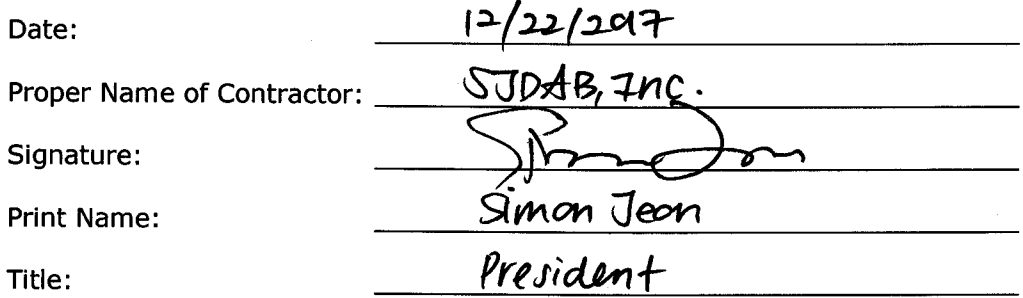 Date: 12/22/2017
Proper Name of Contractor: SJDAB, Inc.
Signature:
Print Name: Simon Jeon
Title: President